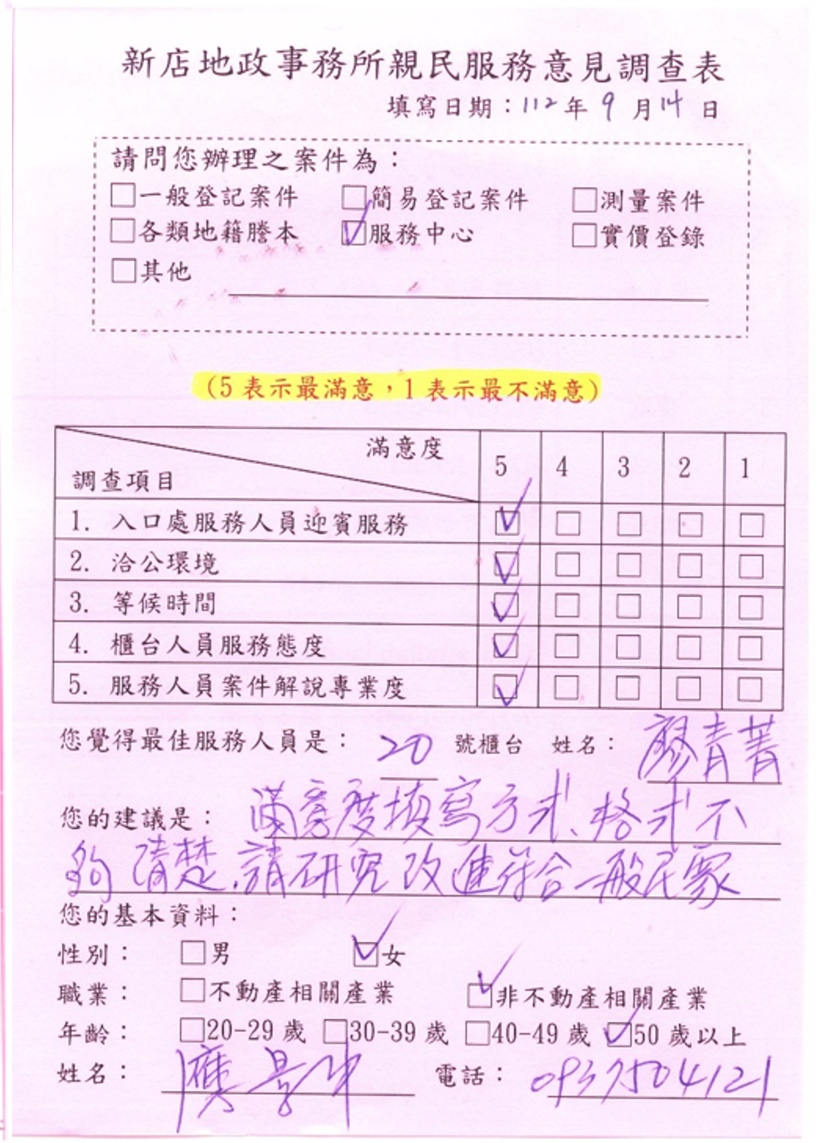 新店地政事務所親民服務意見調查表
填寫日期：112年9月14日
請問您辦理之案件為：
□一般登記案件 □簡易登記案件 □測量案件
□各類地籍謄本 ☑服務中心 □實價登錄
□其他
（5表示最滿意，1表示最不滿意）
滿意度 5 4 3 2 1
調查項目
1. 入口處服務人員迎賓服務 ☑ □ □ □ □
2. 洽公環境 ☑ □ □ □ □
3. 等候時間 ☑ □ □ □ □
4. 櫃台人員服務態度 ☑ □ □ □ □
5. 服務人員案件解說專業度 ☑ □ □ □ □
您覺得最佳服務人員是：20 號櫃台 姓名：廖青菁
您的建議是：滿意度填寫方式、格式不
夠清楚，請研究改進符合一般民眾
您的基本資料：
性別： □男 ☑女
職業： □不動產相關產業 ☑非不動產相關產業
年齡： □20-29歲 □30-39歲 □40-49歲 ☑50歲以上
姓名： 電話：0937504121